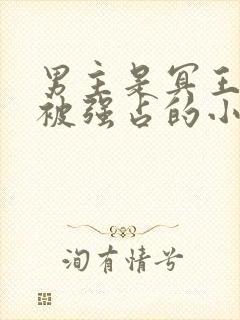 男主是冥王
被强占的小
洵有情兮